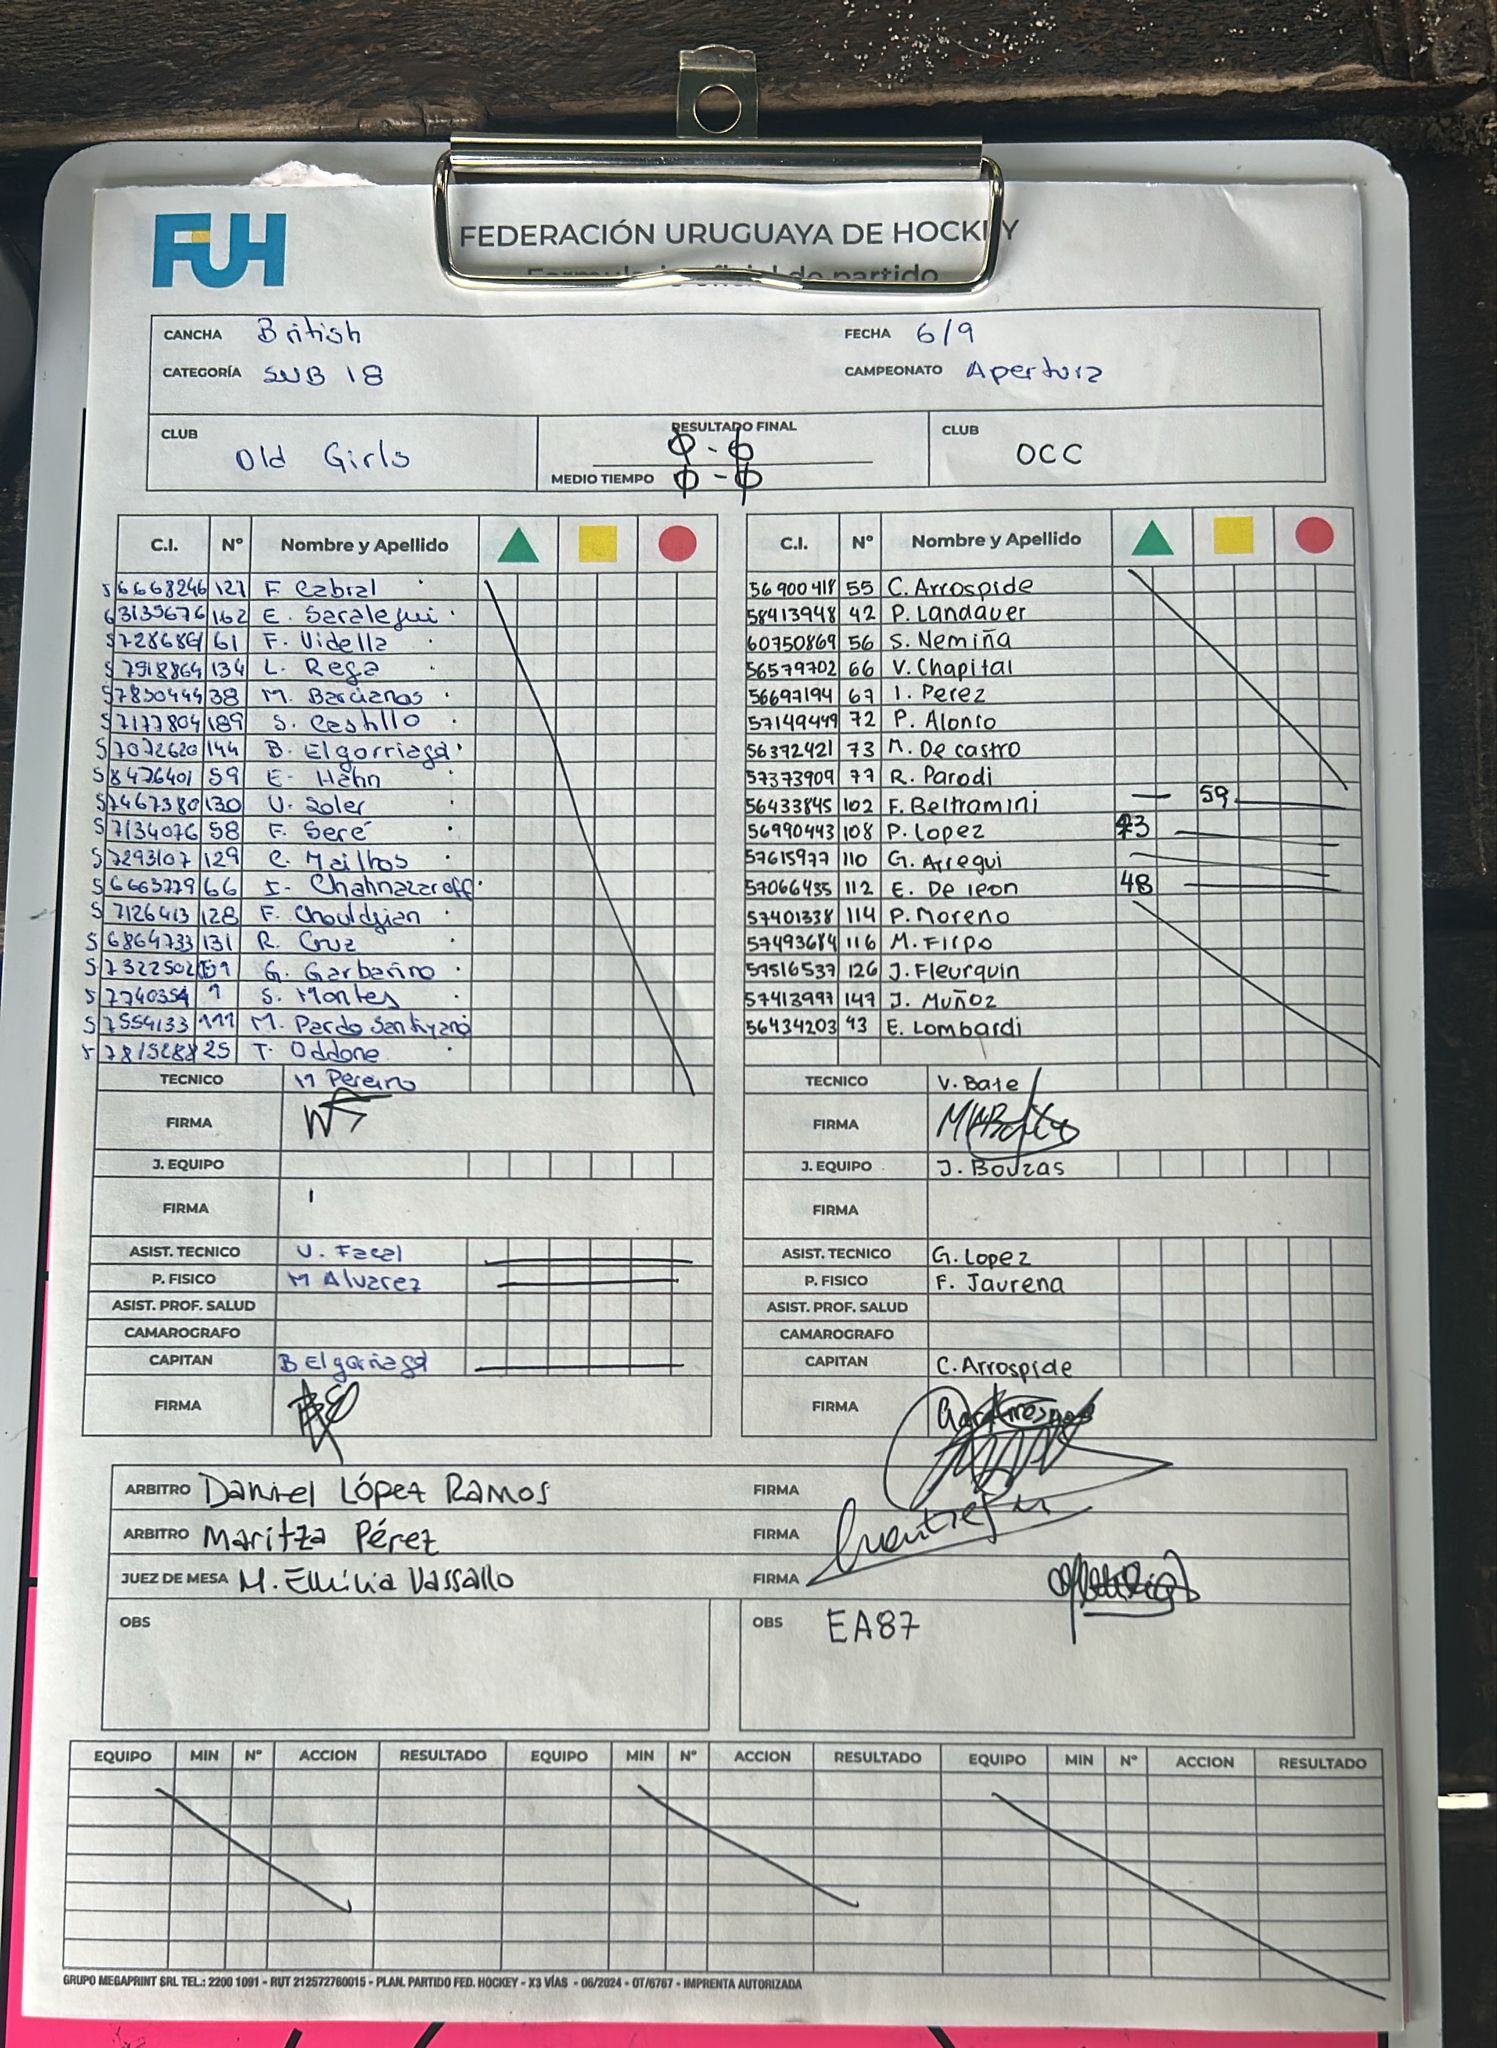 FUH
FEDERACIÓN URUGUAYA DE HOCKEY
Formulario oficial de partido
CANCHA British FECHA 6/9
CATEGORÍA SUB 18 CAMPEONATO Apertura
CLUB Old Girls RESULTADO FINAL 0-0 CLUB OCC
MEDIO TIEMPO 0-0
C.I. Nº Nombre y Apellido C.I. Nº Nombre y Apellido
56668246 127 F. Cabral 56900418 55 C. Arrospide
63135676 162 E. Saralegui 58413948 42 P. Landauer
61 F. Vidella 60750869 56 S. Nemiña
57918864 134 L. Rega 56579702 66 V. Chapital
57850444 38 M. 56697194 67 I. Perez
57177804 189 S. Castillo 57149449 72 P. Alonso
57072620 144 B. Elgorriaga 56372421 73 M. De castro
58476401 59 E. Hahn 57373909 77 R. Parodi
57467380 130 U. Soler 56433845 102 F. Beltramini — 59
57134076 58 F. Seré 56990443 108 P. Lopez 43
57293107 129 C. Mailhos 57615977 110 G. Arregui
56663779 66 I. Chahnazaroff 57066435 112 E. De leon 48
57126413 128 F. Chouldjian 57401338 114 P. Moreno
56864733 131 R. Cruz 57493684 116 M. Firpo
57322502 G. Garbarino 57516537 126 J. Fleurquin
57740354 1 S. Montes 57413997 147 J. Muñoz
57554133 111 M. Pardo Santayana 56434203 93 E. Lombardi
57815288 25 T. Oddone
TECNICO M Pereiro TECNICO V. Bate
FIRMA FIRMA
J. EQUIPO J. EQUIPO J. Bouzas
FIRMA FIRMA
ASIST. TECNICO U. Facal ASIST. TECNICO G. Lopez
P. FISICO M Alvarez P. FISICO F. Jaurena
ASIST. PROF. SALUD ASIST. PROF. SALUD
CAMAROGRAFO CAMAROGRAFO
CAPITAN B Elgorriaga CAPITAN C. Arrospide
FIRMA FIRMA
ARBITRO Daniel López Ramos FIRMA
ARBITRO Maritza Pérez FIRMA
JUEZ DE MESA M. Emilia Vassallo FIRMA
OBS OBS EA87
EQUIPO MIN Nº ACCION RESULTADO EQUIPO MIN Nº ACCION RESULTADO EQUIPO MIN Nº ACCION RESULTADO
GRUPO MEGAPRINT SRL TEL.: 2200 1091 - RUT 212572760015 - PLAN. PARTIDO FED. HOCKEY - X3 VÍAS - 06/2024 - OT/6767 - IMPRENTA AUTORIZADA